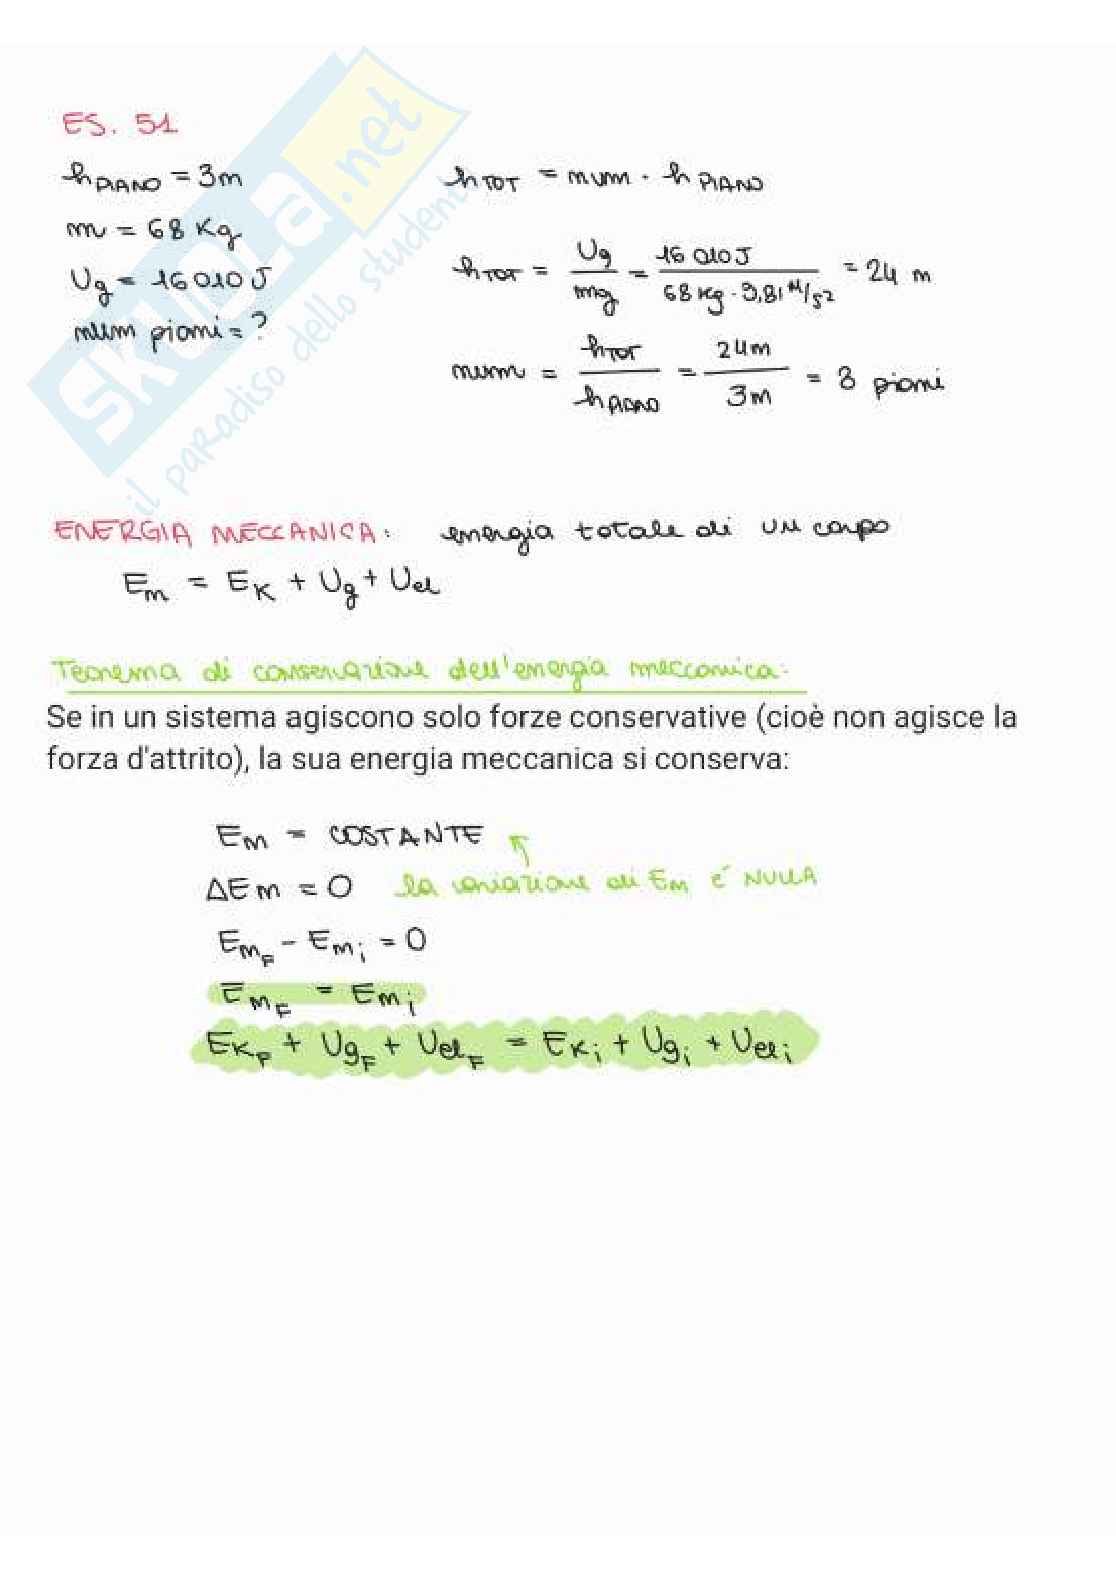 ES. 51
h PIANO = 3m
m = 68 Kg
Ug = 16 010 J
num piani = ?
h TOT = num . h PIANO
h TOT = Ug / mg = 16 010 J / 68 Kg · 9,81 M/s2 = 24 m
num = h TOT / h PIANO = 24m / 3m = 8 piani
ENERGIA MECCANICA: energia totale di un corpo
Em = EK + Ug + Uel
Teorema di conservazione dell'energia meccanica:
Se in un sistema agiscono solo forze conservative (cioè non agisce la
forza d'attrito), la sua energia meccanica si conserva:
EM = COSTANTE
ΔEm = 0 la variazione di EM é NULLA
EmF - Emi = 0
EMF = Emi
EKF + UgF + UelF = EKi + Ugi + Ueli
skuola.net
il paradiso dello studente